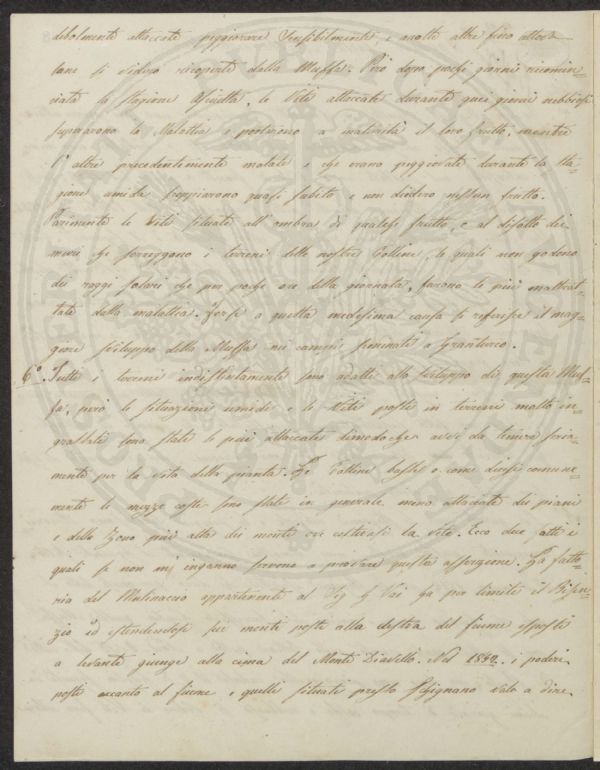 debolmente attaccate peggiorare sensibilmente, e molte altre fino allora
sane si videro ricoperte dalla Muffa. Però dopo pochi giorni ricomin=
ciata la stagione asciutta, le Viti attaccate durante quei giorni nebbiosi
superarono la Malattia e portarono a maturità il loro frutto, mentre
l'altre precedentemente malate e che erano peggiorate durante la sta=
gione umida seppiarono quasi subito e non diedero nessun frutto.
Parimente le Viti situate all'ombra di qualche frutto, e al disotto dei
muri che sorreggono i terreni delle nostre Colline, le quali non godono
dei raggi solari che per poche ore della giornata, furono le più maltrat=
tate dalla malattia. Forse a questa medesima causa si referisce il mag=
giore sviluppo della Muffa nei campi seminati a Granturco.
6° Tutti i terreni indistintamente sono adatti allo sviluppo di questa Muf=
fa, però le situazioni umide e le Viti poste in terreni molto in=
grassati sono state le più attaccate dimodoché avvi da temere seria=
mente per la vita della pianta. Le Colline basse o come dicesi comune=
mente le mezze coste sono state in generale meno attaccate dei piani
e delle zone più alte dei monti ove coltivasi la Vite. Ecco due fatti i
quali se non mi inganno servono a provare questa asserzione. La fatto=
ria del Mulinaccio appartenente al Sig. Vai ha per limite il Bisen=
zio ed estendendosi sui monti posti alla destra del fiume esposti
a levante giunge alla cima del Monte Javello. Nel 1852. i poderi
posti accanto al fiume e quelli situati presso Schignano vale a dire